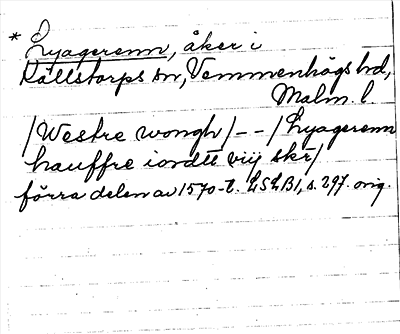 * Lyagerenn, åker i
Källstorps sn, Vemmenhögs hd,
Malm. l.
/Westre wongh/ – – /Lyagerenn
hauffre iordtt viij skr/
förra delen av 1570-t. LSLB1, s. 297. orig.